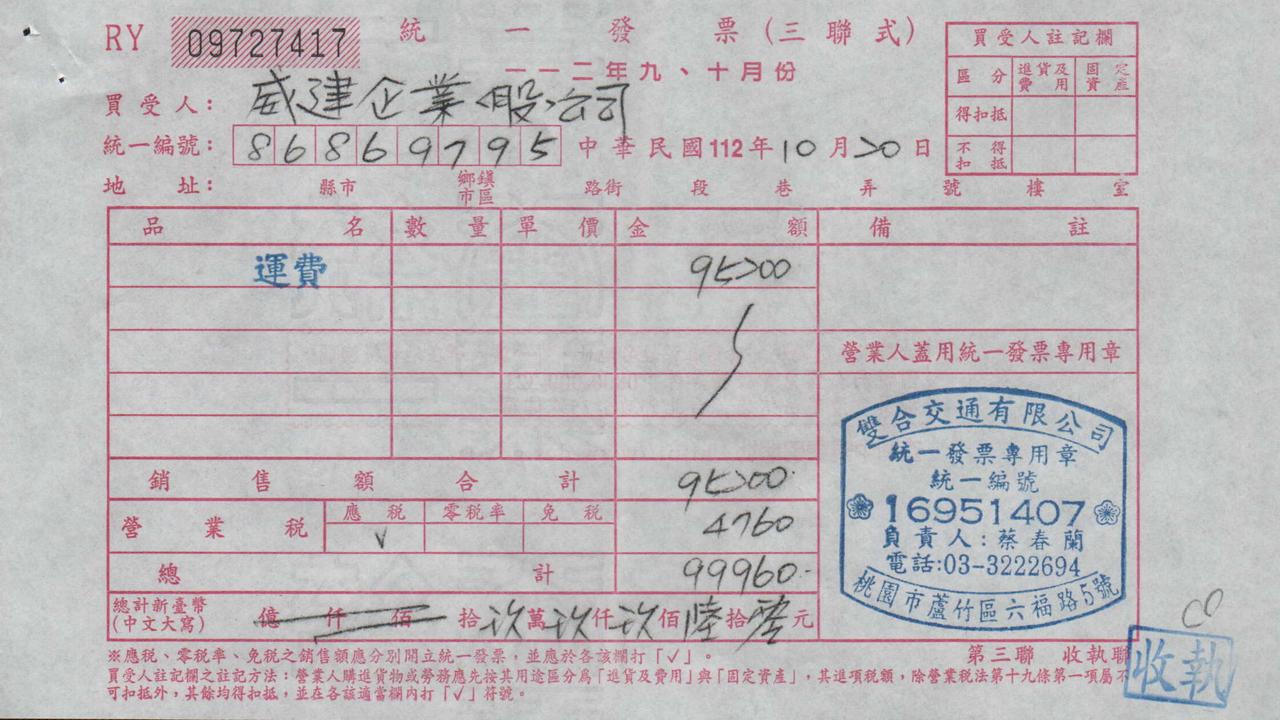 RY 09727417 統一發票(三聯式)
一一二年九、十月份
買受人: 威建企業(股)公司
統一編號: 86869795 中華民國112年10月20日
地址: 縣市 鄉鎮市區 路街 段 巷 弄 號 樓 室
買受人註記欄
區分 進貨及費用 固定資產
得扣抵
不得扣抵
品名 數量 單價 金額 備註
運費 95200
營業人蓋用統一發票專用章
銷售額合計 95200
營業稅 應稅 零稅率 免稅 4760
√
總計 99960
總計新臺幣(中文大寫) 億仟佰拾玖萬玖仟玖佰陸拾零元
雙合交通有限公司
統一發票專用章
統一編號
16951407
負責人:蔡春蘭
電話:03-3222694
桃園市蘆竹區六福路5號
※應稅、零稅率、免稅之銷售額應分別開立統一發票,並應於各該欄打「√」。
第三聯 收執聯
收執
買受人註記欄之註記方法:營業人購進貨物或勞務應先按其用途區分為「進貨及費用」與「固定資產」,其進項稅額,除營業稅法第十九條第一項屬不
可扣抵外,其餘均得扣抵,並在各該適當欄內打「√」符號。